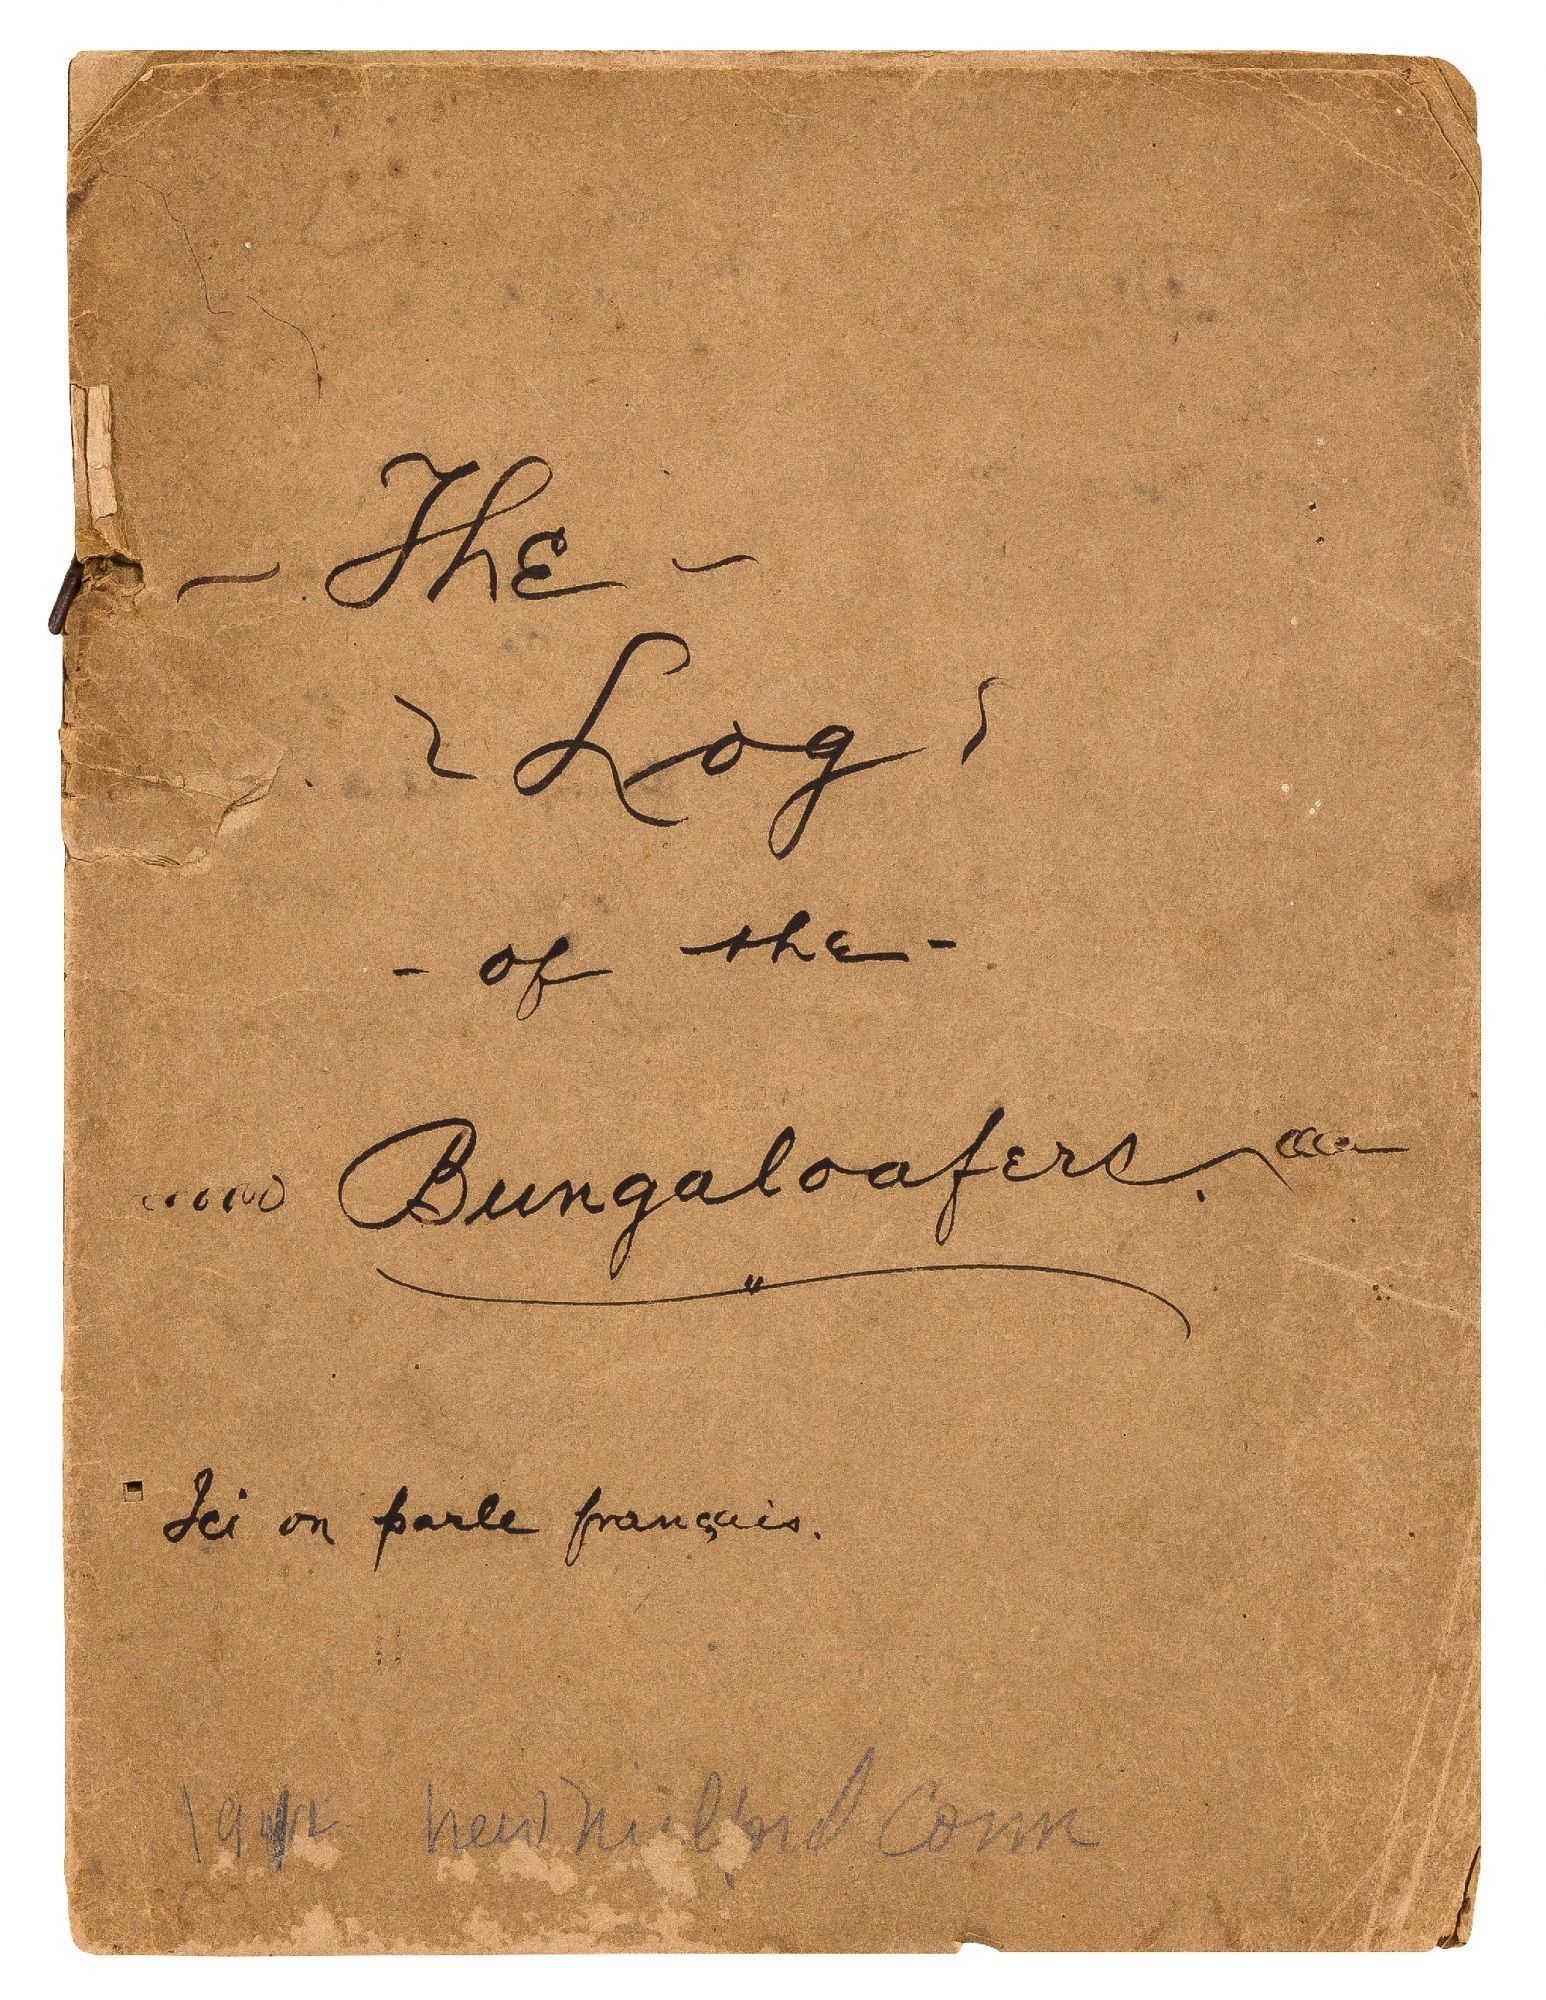 - The -
Log
- of the -
Bungaloafers.
Ici on parle français.
New Milford Conn